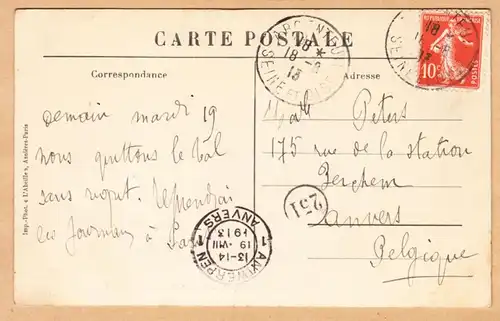 CARTE POSTALE
Correspondance
Adresse
Demain mardi 19
nous quittons le Val
sans regret.
les journaux à
Peters
175 rue de la station
Berchem
Anvers
Belgique
ARGENTEUIL
18 *
18 -8
13
SEINE ET OISE
REPUBLIQUE FRANÇAISE
10c
POSTES
251
1 ANTWERPEN 1
13-14
19 VIII
1913
ANVERS
Imp.-Phot. « L'Abeille », Asnières-Paris